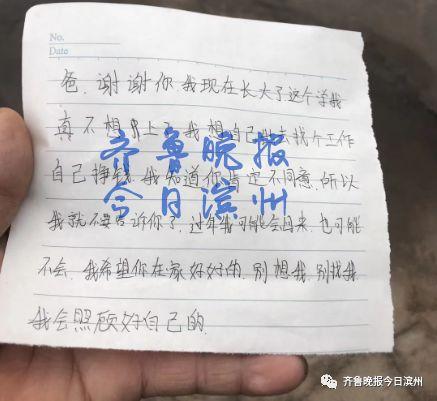 No.
Date
爸，谢谢你，我现在长大了这个学我
真不想上了，我想自己出去找个工作
自己挣钱，我知道你肯定不同意，所以
我就不要告诉你了，过年我可能会回来，也可能
不会，我希望你在家好好的，别想我，别找我
我会照顾好自己的.
齐鲁晚报
今日滨州
齐鲁晚报今日滨州